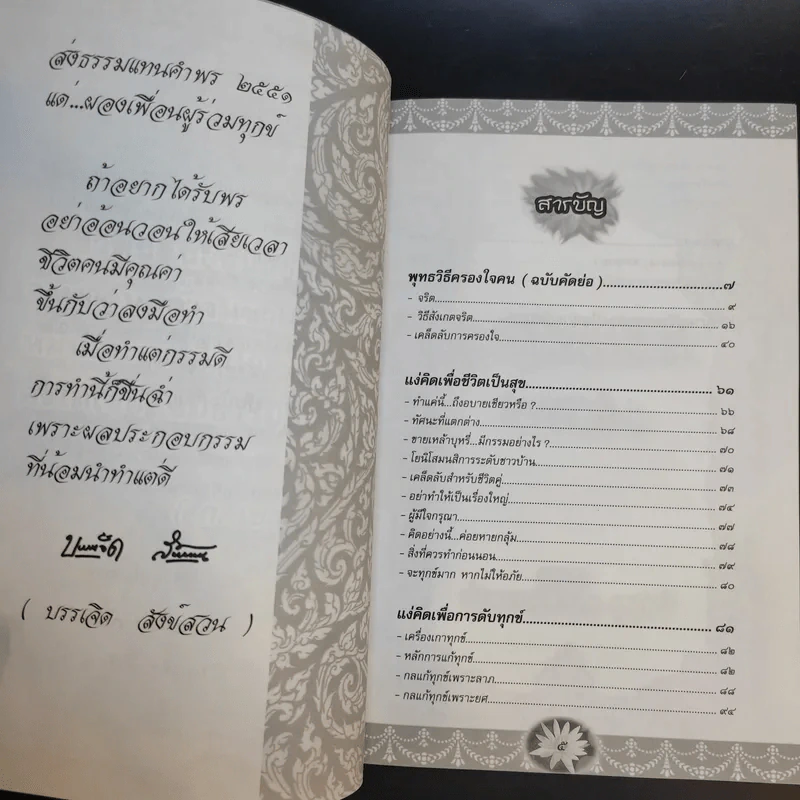 ส่งธรรมแทนคำพร ๒๕๕๑
แด่...ผองเพื่อนผู้ร่วมทุกข์
ถ้าอยากได้รับพร
อย่าอ้อนวอนให้เสียเวลา
ชีวิตคนมีคุณค่า
ขึ้นกับว่าลงมือทำ
เมื่อทำแต่กรรมดี
การทำนี้ก็ชื่นฉ่ำ
เพราะผลประกอบกรรม
ที่น้อมนำทำแต่ดี
บรรเจิด
( บรรเจิด สังข์สวน )
สารบัญ
พุทธวิธีครองใจคน ( ฉบับคัดย่อ )..............................๗
- จริต..............................๙
- วิธีสังเกตจริต..............................๑๖
- เคล็ดลับการครองใจ..............................๔๐
แง่คิดเพื่อชีวิตเป็นสุข..............................๖๑
- ทำแค่นี้...ถึงอบายเชียวหรือ ?..............................๖๖
- ทัศนะที่แตกต่าง..............................๖๘
- ขายเหล้าบุหรี่...มีกรรมอย่างไร ?..............................๗๐
- โยนิโสมนสิการระดับชาวบ้าน..............................๗๑
- เคล็ดลับสำหรับชีวิตคู่..............................๗๓
- อย่าทำให้เป็นเรื่องใหญ่..............................๗๔
- ผู้มีใจกรุณา..............................๗๗
- คิดอย่างนี้...ค่อยหายกลุ้ม..............................๗๘
- สิ่งที่ควรทำก่อนนอน..............................๗๙
- จะทุกข์มาก หากไม่ให้อภัย..............................๘๐
แง่คิดเพื่อการดับทุกข์..............................๘๑
- เครื่องเกาทุกข์..............................๘๒
- หลักการแก้ทุกข์..............................๘๒
- กลแก้ทุกข์เพราะลาภ..............................๘๘
- กลแก้ทุกข์เพราะยศ..............................๙๔
๕